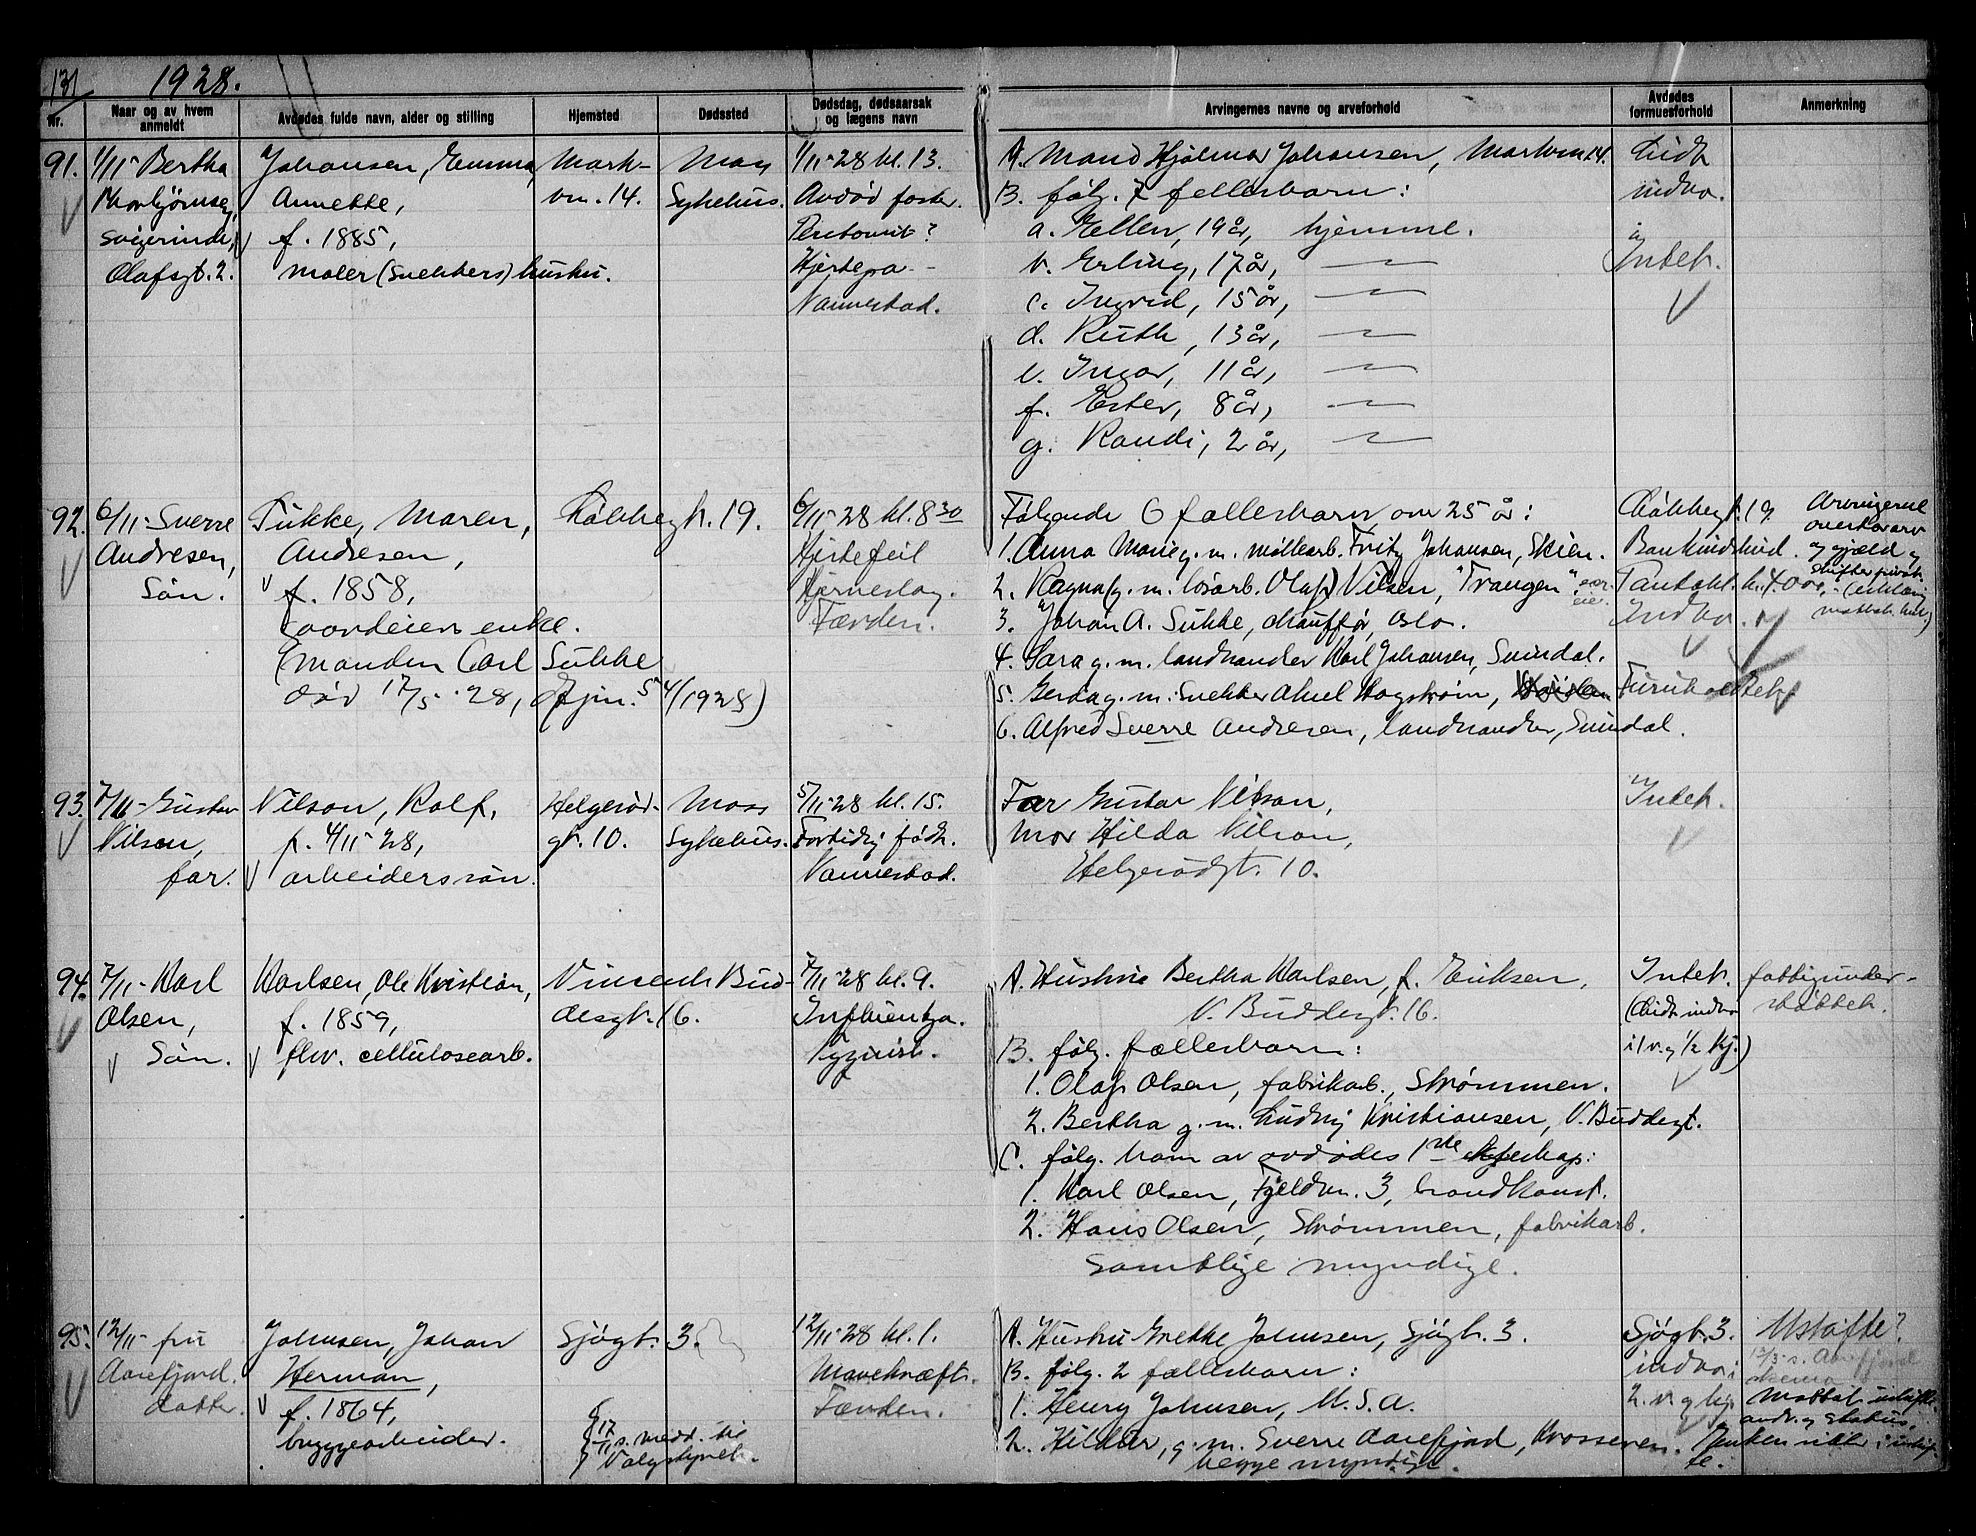 131
1928.
Nr.
Naar og av hvem
anmeldt
Avdødes fulde navn, alder og stilling
Hjemsted
Dødssted
Dødsdag, dødsaarsak
og lægens navn
Arvingernes navne og arveforhold
Avdødes
formuesforhold
Anmerkning
91.
1/11- Bertha
svigerinde,
Olafsgt. 2.
Johansen, Emma
Annette,
f. 1885,
maler (snekkers) hustru.
Mark-
vn. 14.
Moss
Sykehus.
1/11-28 kl. 13.
Avdød foster.
Peritonit?
Vannestad.
A. Mand Hjalmar Johansen, Markvn 14.
B. følg. 7 fellesbarn:
a. Ellen, 19 år, hjemme.
b. Erling, 17 år,
c. Ingrid, 15 år,
d. Ruth, 13 år,
e. Ingar, 11 år,
f. Ester, 8 år,
g. Randi, 2 år,
Lidt
indbo.
Intet.
92.
6/11- Sverre
Andresen,
Søn.
Sukke, Maren,
Andresen,
f. 1858,
Gaardeiers enke.
(Manden Carl Sukke
død 17/5-28, 54/1928)
gt. 19.
6/11-28 kl. 8 30
Hjertefeil
Hjerneslag.
Færden.
Følgende 6 fællesbarn over 25 år:
1. Anna Marie g. m. møllearb. Fritz Johansen, Skien.
2. Ragna g. m. løsarb. Olaf Nilsen, "Trangen",
3. Johan A. Sukke, chauffør, Oslo.
4. Sara g. m. landhandler Karl Johansen, Svindal.
5. Gerda g. m. snekker Aksel Hagstrøm,
6. Alfred Sverre Andresen, landhandler, Svindal.
19.
Pantobl. kr. 4000,-
Indbo.
Arvingerne
overtar arv
og gjæld og
skifter privat.
93.
7/11- Gustav
Nilson,
far.
Nilson, Rolf,
f. 4/11-28,
arbeiderssøn.
Helgerød-
gt. 10.
Moss
Sykehus.
5/11-28 kl. 15.
Fortidlig født.
Vannestad.
Far Gustav Nilson,
Mor Hilda Nilson,
Helgerødgt. 10.
Intet.
94.
7/11- Karl
Olsen,
Søn.
Karlsen, Ole Kristian,
f. 1859,
fhv. cellulosearb.
Vincents Bud-
desgt. 16.
7/11-28 kl. 9.
Influentza.
A. Hustru Bertha Karlsen, f. Eriksen,
V. Buddesgt. 16.
B. følg. fællesbarn:
1. Olaf Olsen, fabrikarb., Strømmen.
2. Bertha g. m. Ludvig Kristiansen, V. Buddesgt.
C. følg. barn av avdødes 1ste egteskap:
1. Karl Olsen, Fjeldvn. 3, brandkonst.
2. Hans Olsen, Strømmen, fabrikarb.
Samtlige myndige.
Intet.
(Lidt indbo
i 1 v. og 1/2 kj.)
fattigunder-
støttet.
95.
12/11- fru
Aarefjord.
datter.
Johnsen, Johan
Herman,
f. 1864,
byggearbeider.
Sjøgt. 3.
17/11 s. medd. til
Valgstyret.
12/11-28 kl. 1.
Mavekræft.
Færden.
A. Hustru Grethe Johnsen, Sjøgt. 3.
B. følg. 2 fællesbarn:
1. Henry Johnsen, U.S.A.
2. g. m. Sverre Aarefjord, Krosseren.
begge myndige.
Sjøgt. 3.
indbo i
2 v. og kj.
Uskifte?
Enken sitter i uskif-
te.